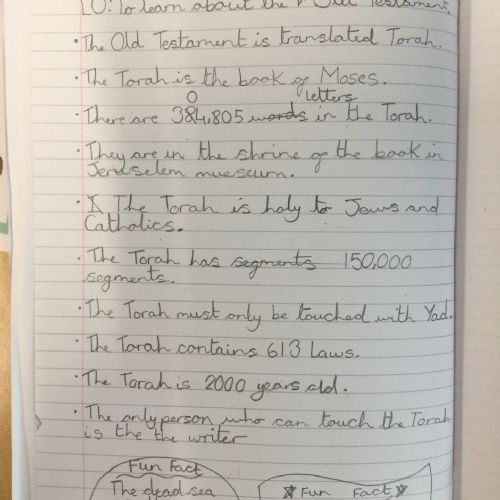 LO: To learn about the Old Testament.
· The Old Testament is translated Torah.
· The Torah is the book of Moses.
0 letters
· There are 384,805 words in the Torah.
· They are in the shrine of the book in
Jeruselem mueseum.
· The Torah is holy to Jews and
Catholics.
· The Torah has segments 150,000
segments.
· The Torah must only be touched with Yad.
· The Torah contains 613 laws.
· The Torah is 2000 years old.
· The only person who can touch the Torah
is the the writer
Fun Fact
The dead sea
Fun Fact